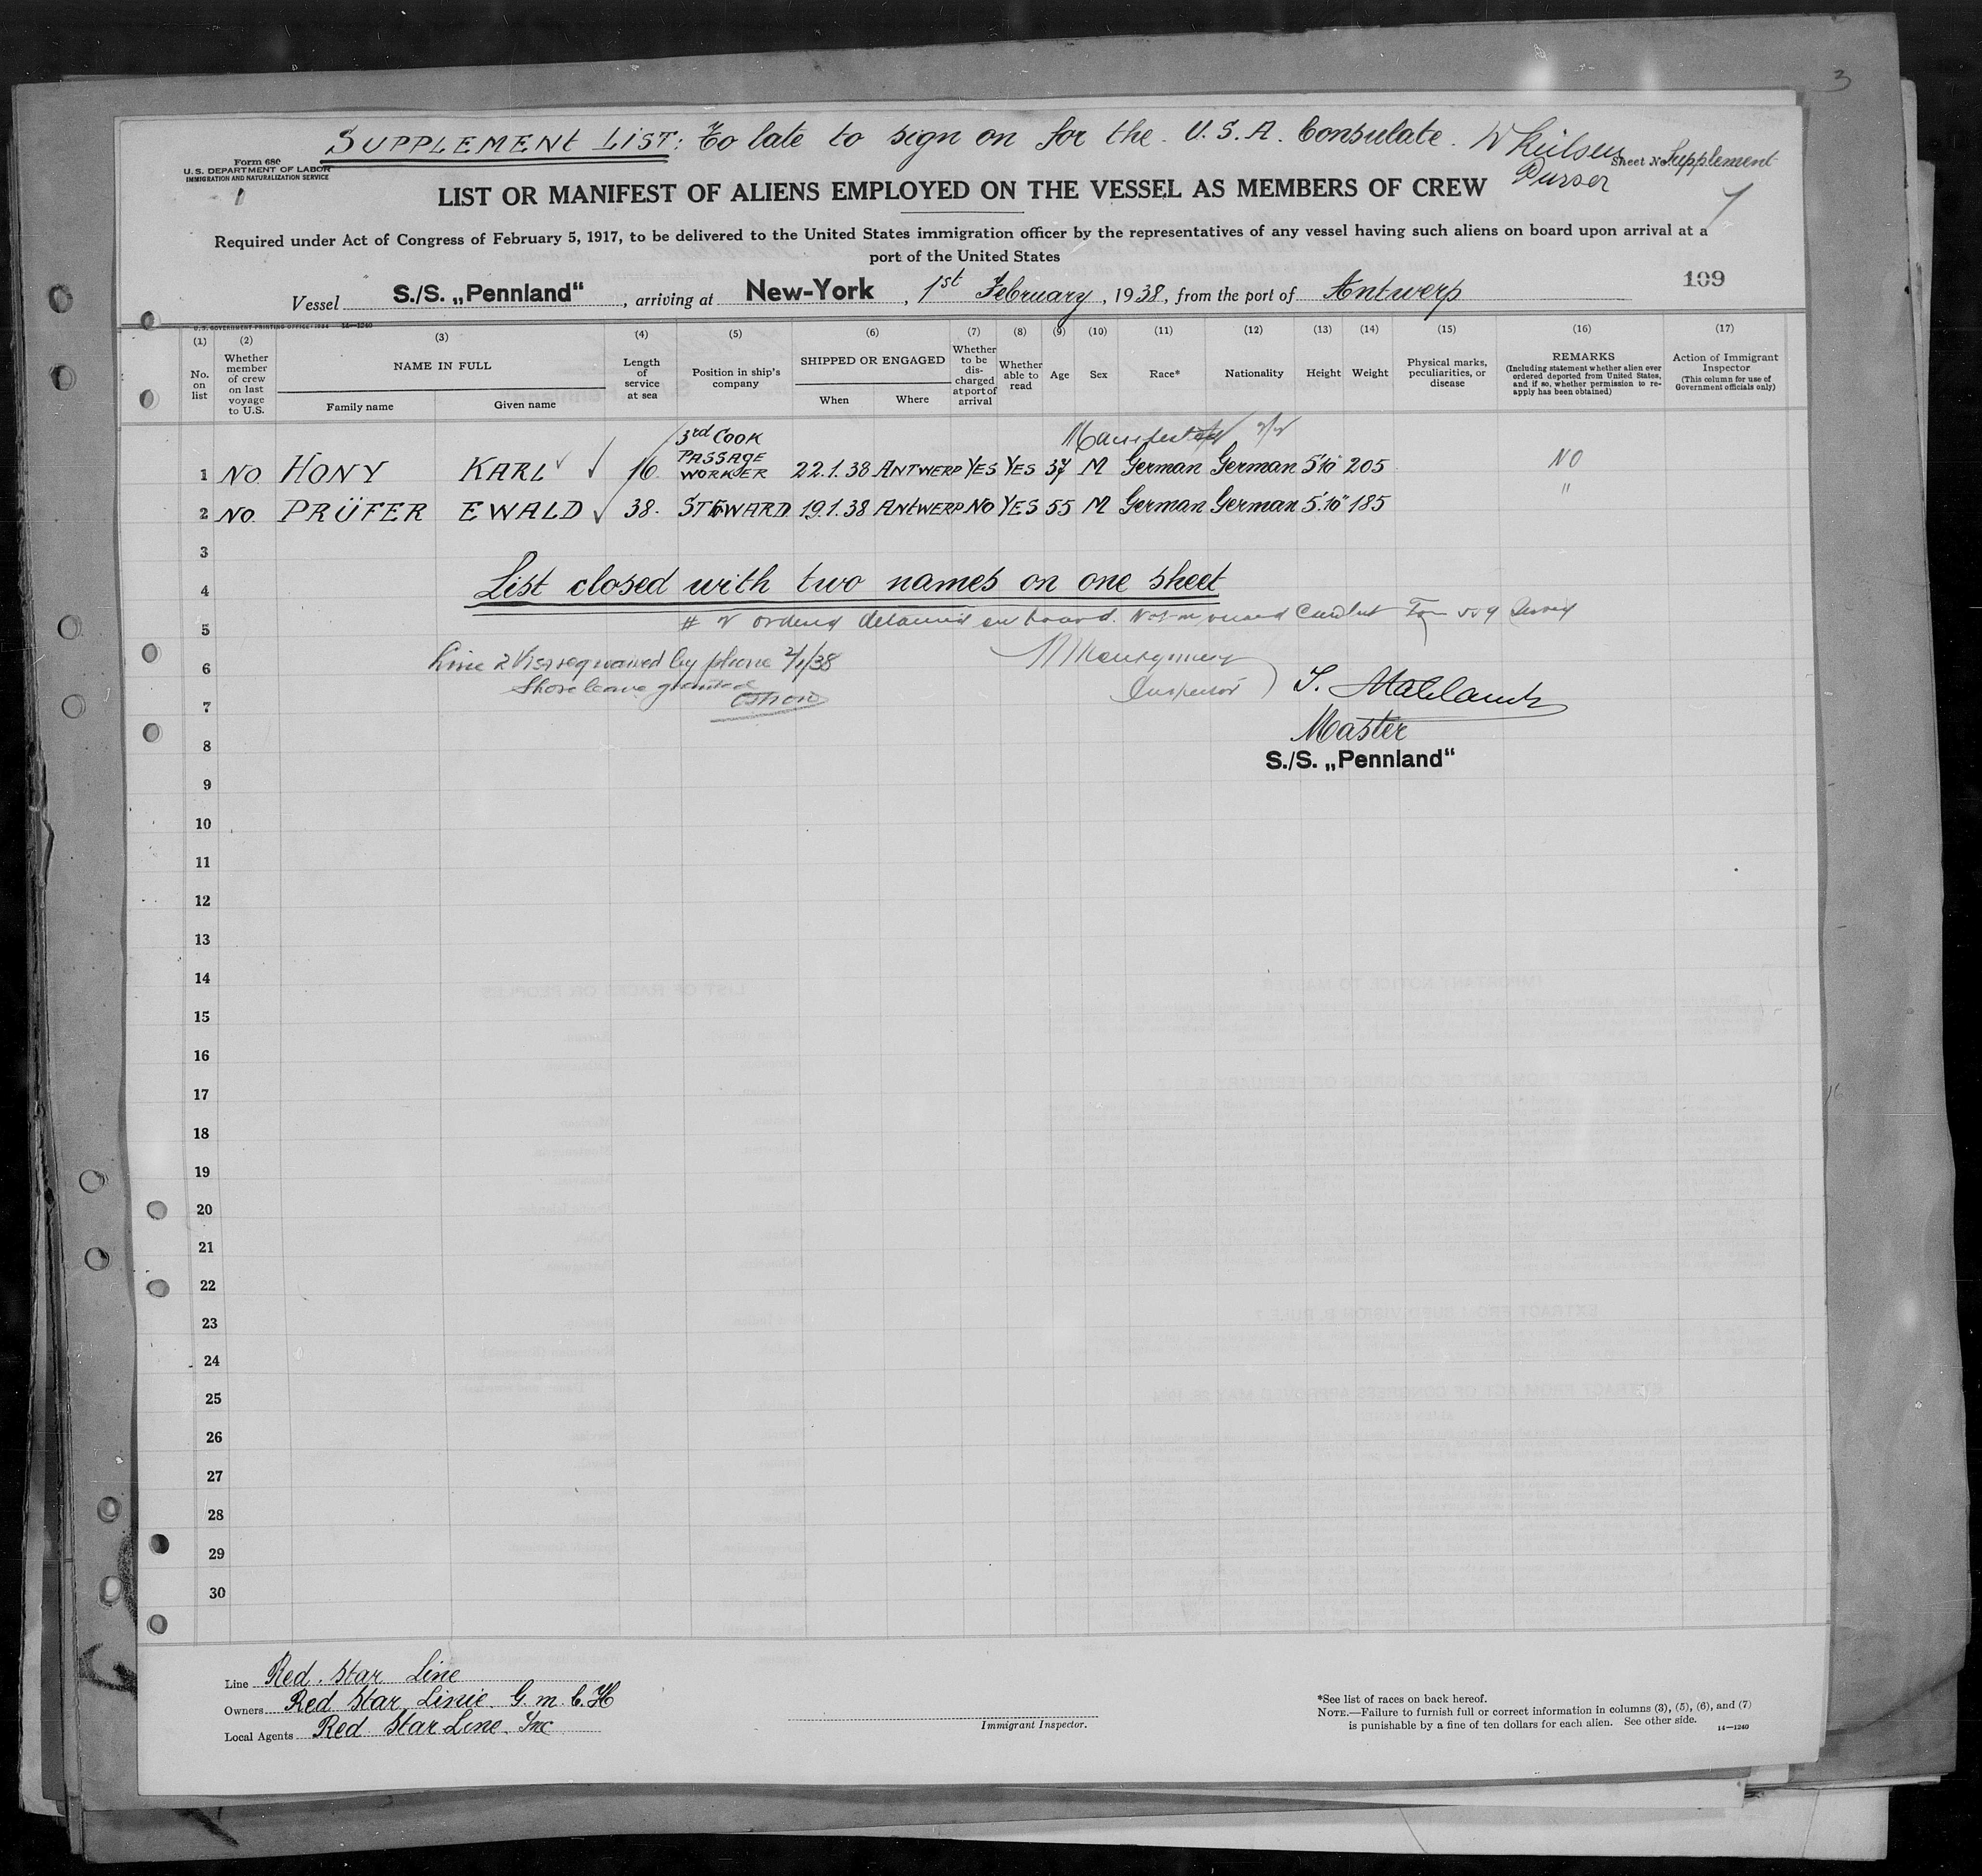 3
SUPPLEMENT LIST: To late to sign on for the U.S.A. Consulate.
Purser
Form 680
U. S. DEPARTMENT OF LABOR
IMMIGRATION AND NATURALIZATION SERVICE
Sheet No. Supplement
1
LIST OR MANIFEST OF ALIENS EMPLOYED ON THE VESSEL AS MEMBERS OF CREW
Required under Act of Congress of February 5, 1917, to be delivered to the United States immigration officer by the representatives of any vessel having such aliens on board upon arrival at a
port of the United States
109
Vessel S./S. „Pennland“, arriving at New-York, 1st February, 1938, from the port of Antwerp
U. S. GOVERNMENT PRINTING OFFICE: 1934 14—1240
(1) (2) (3) (4) (5) (6) (7) (8) (9) (10) (11) (12) (13) (14) (15) (16) (17)
No. on list
Whether member of crew on last voyage to U.S.
NAME IN FULL
Family name Given name
Length of service at sea
Position in ship's company
SHIPPED OR ENGAGED
When Where
Whether to be discharged at port of arrival
Whether able to read
Age Sex Race* Nationality Height Weight
Physical marks, peculiarities, or disease
REMARKS
(Including statement whether alien ever ordered deported from United States, and if so, whether permission to reapply has been obtained)
Action of Immigrant Inspector
(This column for use of Government officials only)
3rd COOK
1 NO HONY KARL 16. PASSAGE WORKER 22.1.38 ANTWERP YES YES 37 M German German 5'10 205 NO
2 NO. PRÜFER EWALD 38. STEWARD 19.1.38 ANTWERP NO YES 55 M German German 5'.10" 185 "
3
4 List closed with two names on one sheet
5
6 Line 2 Visa req waived by phone 2/1/38
Inspector
Shore leave granted
7
Master
8
S./S. „Pennland“
9
10
11
12
13
14
15
16
17
18
19
20
21
22
23
24
25
26
27
28
29
30
Line Red Star Line
Owners Red Star Linie G.m.b.H
Local Agents Red Star Line Inc
Immigrant Inspector.
*See list of races on back hereof.
NOTE.—Failure to furnish full or correct information in columns (3), (5), (6), and (7)
is punishable by a fine of ten dollars for each alien. See other side. 14—1240